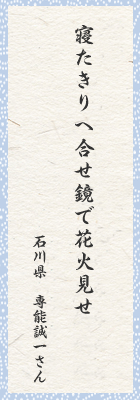 寝たきりへ合せ鏡で花火見せ
石川県　専能誠一さん